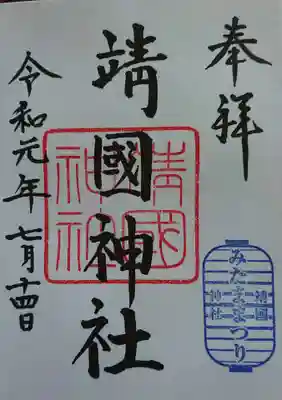 奉拝
靖國神社
靖國神社
令和元年七月十四日
みたままつり
靖国
神社